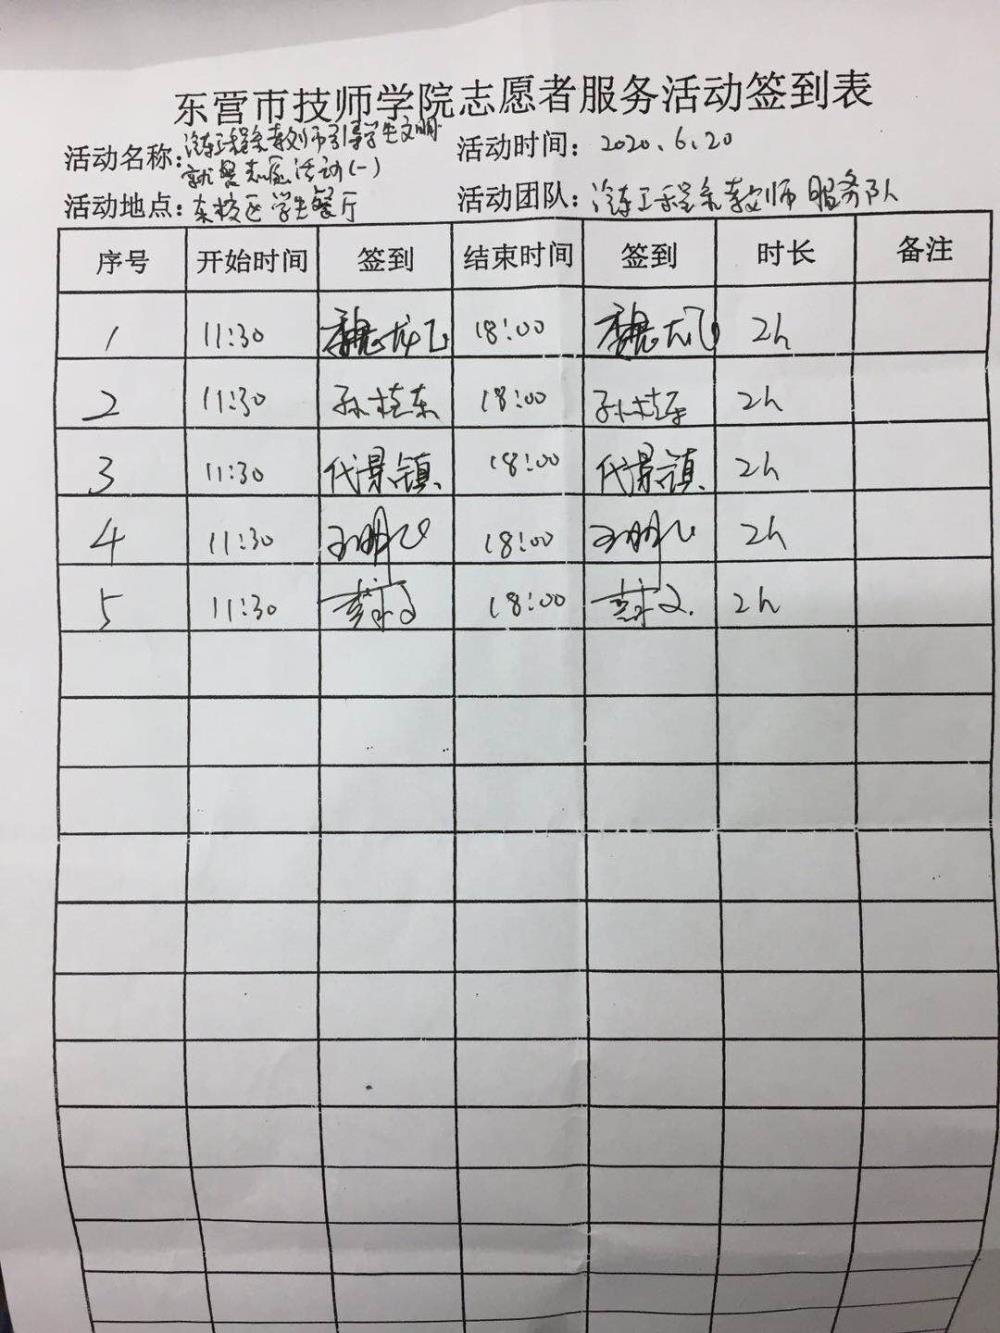 东营市技师学院志愿者服务活动签到表
活动名称：汽车工程系教师引导学生文明
就餐志愿活动(一)
活动时间：2020.6.20
活动地点：东校区学生餐厅
活动团队：汽车工程系教师服务队
序号 开始时间 签到 结束时间 签到 时长 备注
1 11:30 魏龙飞 18:00 魏龙飞 2h
2 11:30 孙桂东 18:00 孙桂东 2h
3 11:30 代景镇 18:00 代景镇 2h
4 11:30 18:00 2h
5 11:30 18:00 2h